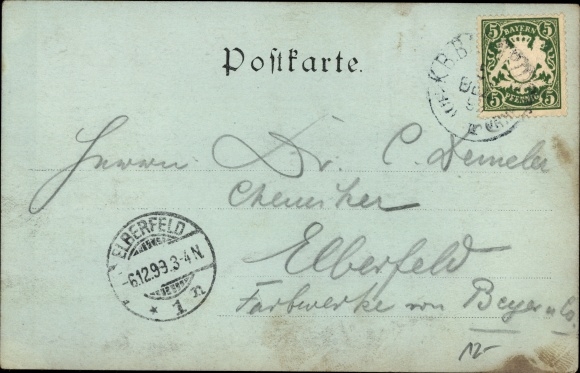 Postkarte.
5 BAYERN 5
5 PFENNIG 5
K.B.B
Herrn Dr. C. Demeler
Chemiker
Elberfeld
Farbwerke von Beyer u Co.
12-
ELBERFELD
-6.12.99.3-4N.
* 1 n